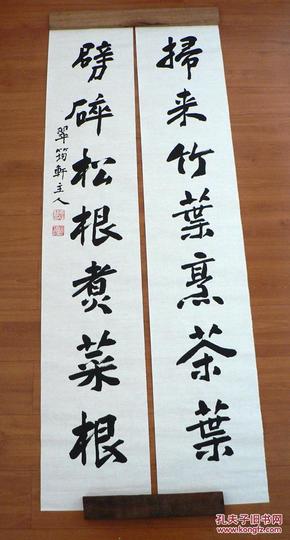 掃来竹葉烹茶葉
劈碎松根煮菜根
翠筠軒主人
孔夫子旧书网
www.kongfz.com